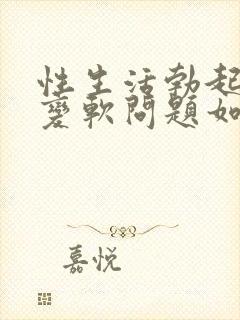 性生活勃起
变軟問題如
嘉悦